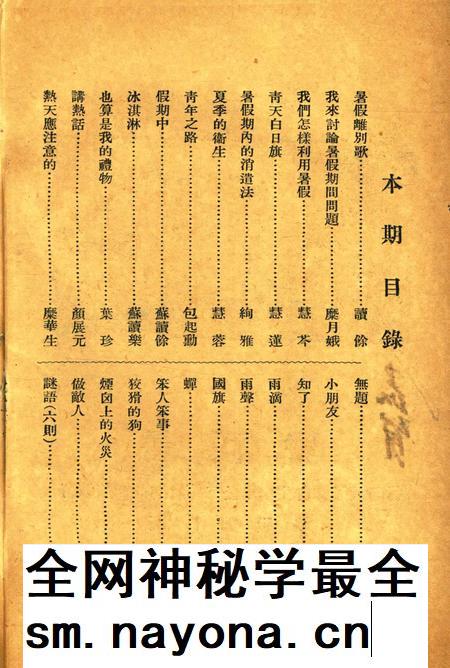 本期目錄
暑假離別歌……讀餘
我來討論暑假期間問題……糜月娥
我們怎樣利用暑假……慧芩
青天白日旗……慧蓮
暑假期內的消遣法……絢雅
夏季的衛生……慧蓉
青年之路……包起勳
假期中……蘇讀餘
冰淇淋……蘇讀樂
也算是我的禮物……葉珍
講熱話……顏展元
熱天應注意的……糜華生
無題……
小朋友……
知了……
雨滴……
雨聲……
國旗……
蟬……
笨人笨事……
狡猾的狗……
煙囪上的火災……
做敵人……
謎語(六則)……
全网神秘学最全
sm.nayona.cn